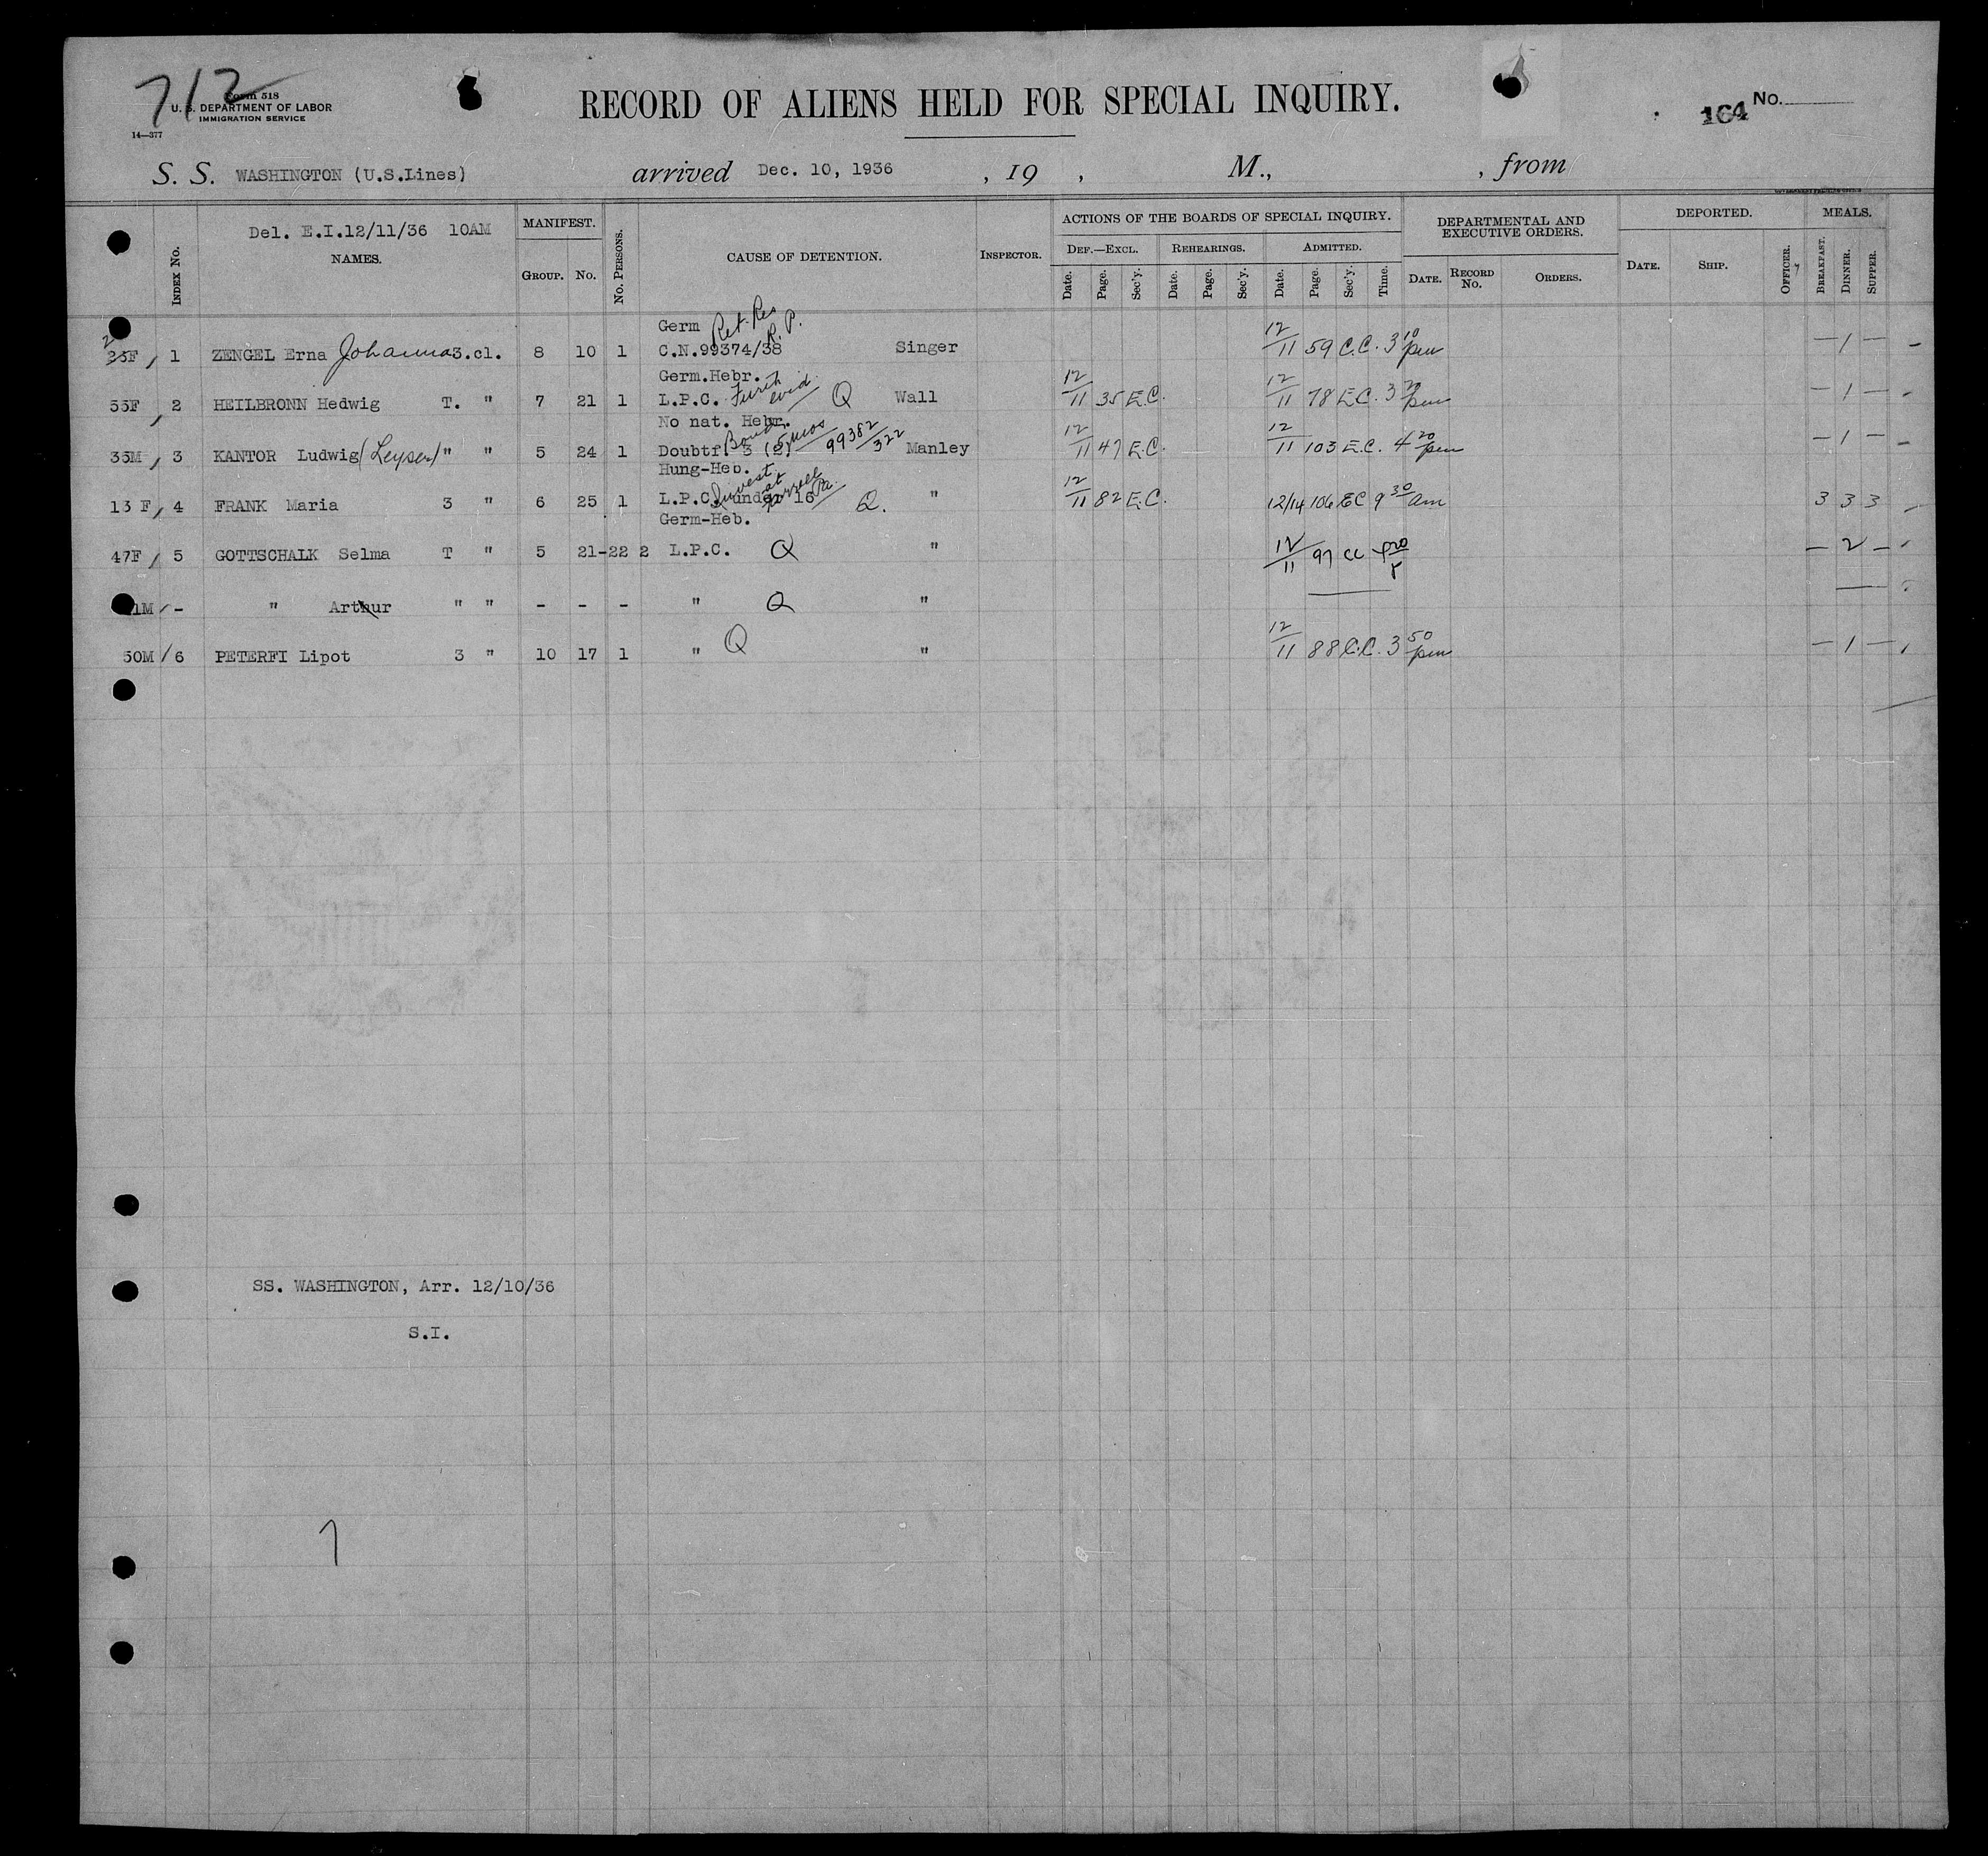 712
Form 518
U. S. DEPARTMENT OF LABOR
IMMIGRATION SERVICE
14—377
RECORD OF ALIENS HELD FOR SPECIAL INQUIRY.
164 No.
S. S. WASHINGTON (U.S.Lines) arrived Dec. 10, 1936 , 19 , M., , from
INDEX No. Del. E.I.12/11/36 10AM NAMES. MANIFEST. GROUP. No. No. PERSONS. CAUSE OF DETENTION. INSPECTOR. ACTIONS OF THE BOARDS OF SPECIAL INQUIRY. DEPARTMENTAL AND EXECUTIVE ORDERS. DEPORTED. MEALS.
DEF.—EXCL. REHEARINGS. ADMITTED.
Date. Page. Sec'y. Date. Page. Sec'y. Date. Page. Sec'y. Time. DATE. RECORD No. ORDERS. DATE. SHIP. OFFICER. BREAKFAST. DINNER. SUPPER.
Germ Ret. Res R.P.
1 ZENGEL Erna Johanna 3.cl. 8 10 1 C.N.99374/38 Singer 12/11 59 C.C. 3 10 pm — 1 —
Germ.Hebr.
55F 2 HEILBRONN Hedwig T. " 7 21 1 L.P.C. Furth evid Q Wall 12/11 35 E.C. 12/11 78 E.C. 3 20 pm — 1 —
No nat. Hebr.
35M 3 KANTOR Ludwig (Leyser) " " 5 24 1 Doubtf. 3 (2) Bond 5 mos 99382/322 Manley 12/11 47 E.C. 12/11 103 E.C. 4 20 pm — 1 —
Hung-Heb.
13 F 4 FRANK Maria 3 " 6 25 1 L.P.C. under 16 Invest. at Farrell Pa. Q. " 12/11 82 E.C. 12/14 106 EC 9 30 am 3 3 3
Germ-Heb.
47F 5 GOTTSCHALK Selma T " 5 21-22 2 L.P.C. Q " 12/11 97 CC — 2 —
- " Arthur " " - - - " Q "
50M 6 PETERFI Lipot 3 " 10 17 1 " Q " 12/11 88 C.C. 3 50 pm — 1 —
SS. WASHINGTON, Arr. 12/10/36
S.I.
7